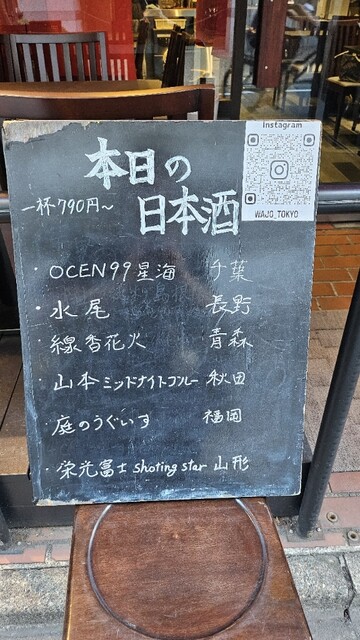 Instagram
WAJO_TOKYO
本日の
日本酒
一杯790円~
・OCEN99星海 千葉
・水尾 長野
・線香花火 青森
・山本ミッドナイトブルー 秋田
・庭のうぐいす 福岡
・栄光冨士 shoting star 山形